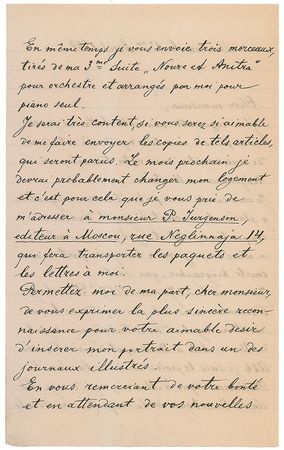 En même temps je vous envoie trois morceaux,
tirés de ma 3me Suite „Noure et Anitra"
pour orchestre et arrangés par moi pour
piano seul.
Je serai très content, si vous serez si aimable
de me faire envoyer les copies de tels articles,
qui seront parus. Le mois prochain je
devrai probablement changer mon logement
et c'est pour cela que je vous prie de
m'adresser à monsieur P. Jurgenson
editeur à Moscou, rue Neglinnaja 14,
qui fera transporter les paquets et
les lettres à moi.
Permettez moi de ma part, cher monsieur,
de vous exprimer la plus sincère recon-
naissance pour votre aimable desir
d'insérer mon portrait dans un des
journaux illustrés.
En vous remerciant de votre bonté
et en attendant de vos nouvelles